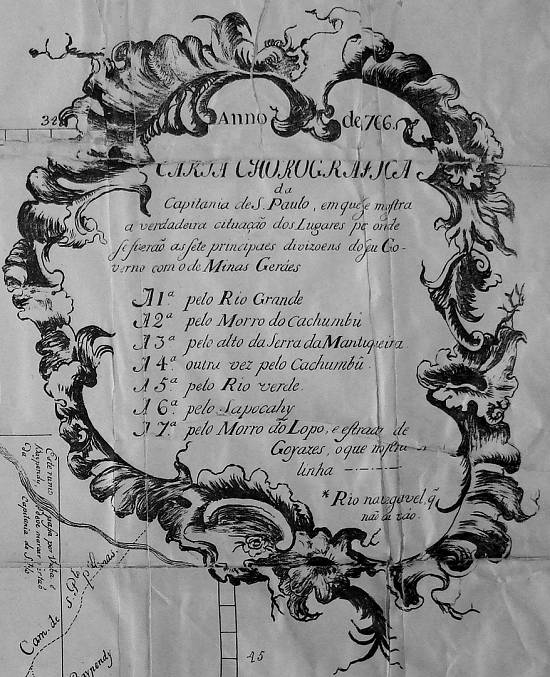 Anno de 766.
CARTA CHOROGRAFICA
da
Capitania de S. Paulo, em que se mostra
a verdadeira cituação dos Lugares por onde
se fiserão as sete principaes divizoens do seu Go-
verno com o de Minas Geráes
A 1ª pelo Rio Grande
A 2ª pelo Morro do Cachumbû
A 3ª pelo alto da Serra da Mantiqueira
A 4ª outra vez pelo Cachumbû.
A 5ª pelo Rio verde.
A 6ª pelo Sapocahy
A 7ª pelo Morro do Lopo, e estrada de
Goyazes, o que mostra
linha
* Rio navegavel, q̃
não
32
Este rumo
Capitania de
Cam. de
S.
45